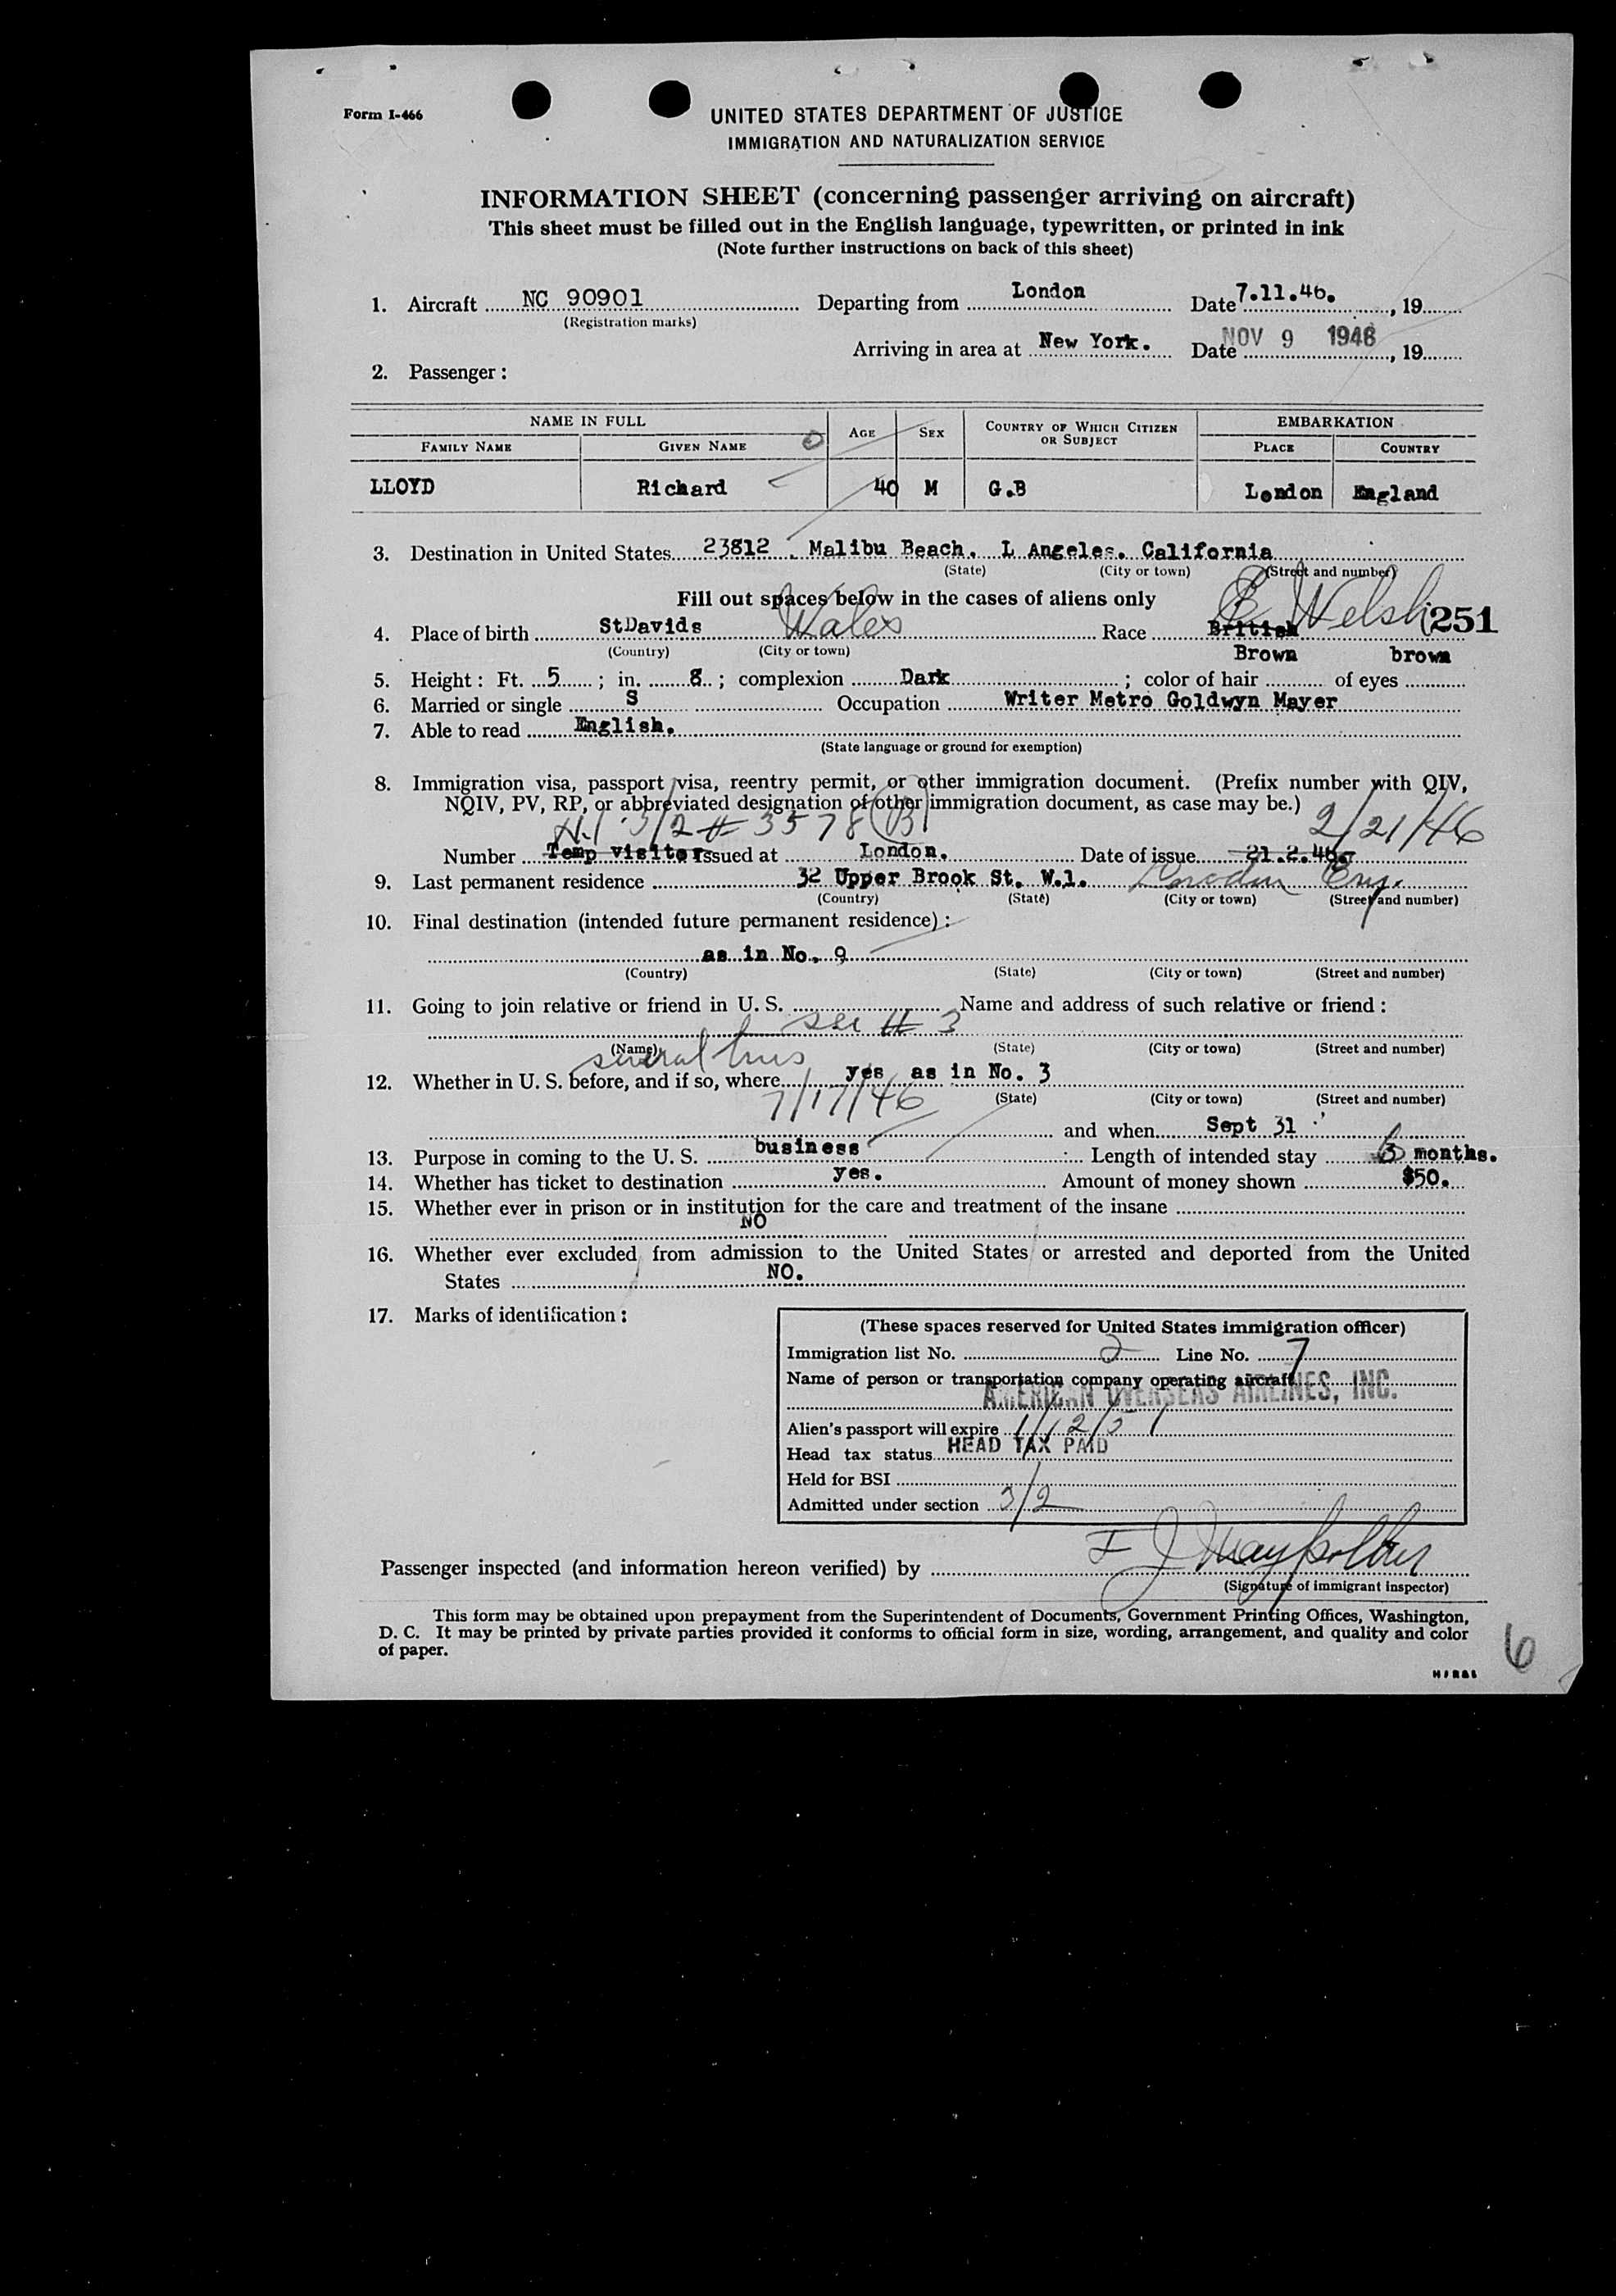 Form I-466
UNITED STATES DEPARTMENT OF JUSTICE
IMMIGRATION AND NATURALIZATION SERVICE
INFORMATION SHEET (concerning passenger arriving on aircraft)
This sheet must be filled out in the English language, typewritten, or printed in ink
(Note further instructions on back of this sheet)
1. Aircraft NC 90901 Departing from London Date 7.11.46. , 19
(Registration marks)
Arriving in area at New York. Date NOV 9 1946 , 19
2. Passenger :
NAME IN FULL AGE SEX COUNTRY OF WHICH CITIZEN OR SUBJECT EMBARKATION
FAMILY NAME GIVEN NAME PLACE COUNTRY
LLOYD Richard 40 M G.B London England
3. Destination in United States 23812 . Malibu Beach. L Angeles. California
(State) (City or town) (Street and number)
Fill out spaces below in the cases of aliens only
4. Place of birth StDavids Wales Race British Welsh 251
(Country) (City or town)
Brown brown
5. Height : Ft. 5 ; in. 8 ; complexion Dark ; color of hair of eyes
6. Married or single S Occupation Writer Metro Goldwyn Mayer
7. Able to read English.
(State language or ground for exemption)
8. Immigration visa, passport visa, reentry permit, or other immigration document. (Prefix number with QIV,
NQIV, PV, RP, or abbreviated designation of other immigration document, as case may be.)
3/2 # 3578 (B) 2/21/46
Number Temp visitor Issued at London. Date of issue 21.2.46.
9. Last permanent residence 32 Upper Brook St. W.1. London Eng.
(Country) (State) (City or town) (Street and number)
10. Final destination (intended future permanent residence) :
as in No. 9
(Country) (State) (City or town) (Street and number)
11. Going to join relative or friend in U. S. Name and address of such relative or friend :
see # 3
(Name) (State) (City or town) (Street and number)
several
12. Whether in U. S. before, and if so, where yes as in No. 3
7/17/46 (State) (City or town) (Street and number)
and when Sept 31
13. Purpose in coming to the U. S. business Length of intended stay months.
14. Whether has ticket to destination yes. Amount of money shown $50.
15. Whether ever in prison or in institution for the care and treatment of the insane
NO
16. Whether ever excluded from admission to the United States or arrested and deported from the United
States NO.
17. Marks of identification :
(These spaces reserved for United States immigration officer)
Immigration list No. 2 Line No. 7
Name of person or transportation company operating aircraft
AMERICAN OVERSEAS AIRLINES, INC.
Alien's passport will expire 1/12/51
Head tax status HEAD TAX PAID
Held for BSI
Admitted under section 3/2
Passenger inspected (and information hereon verified) by F J
(Signature of immigrant inspector)
This form may be obtained upon prepayment from the Superintendent of Documents, Government Printing Offices, Washington,
D. C. It may be printed by private parties provided it conforms to official form in size, wording, arrangement, and quality and color
of paper.
6